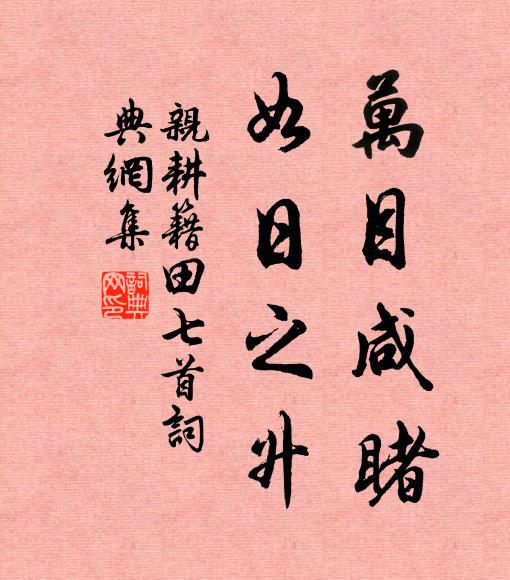 萬目咸睹
如日之升
親耕籍田七首詞
典網集
詞典網印